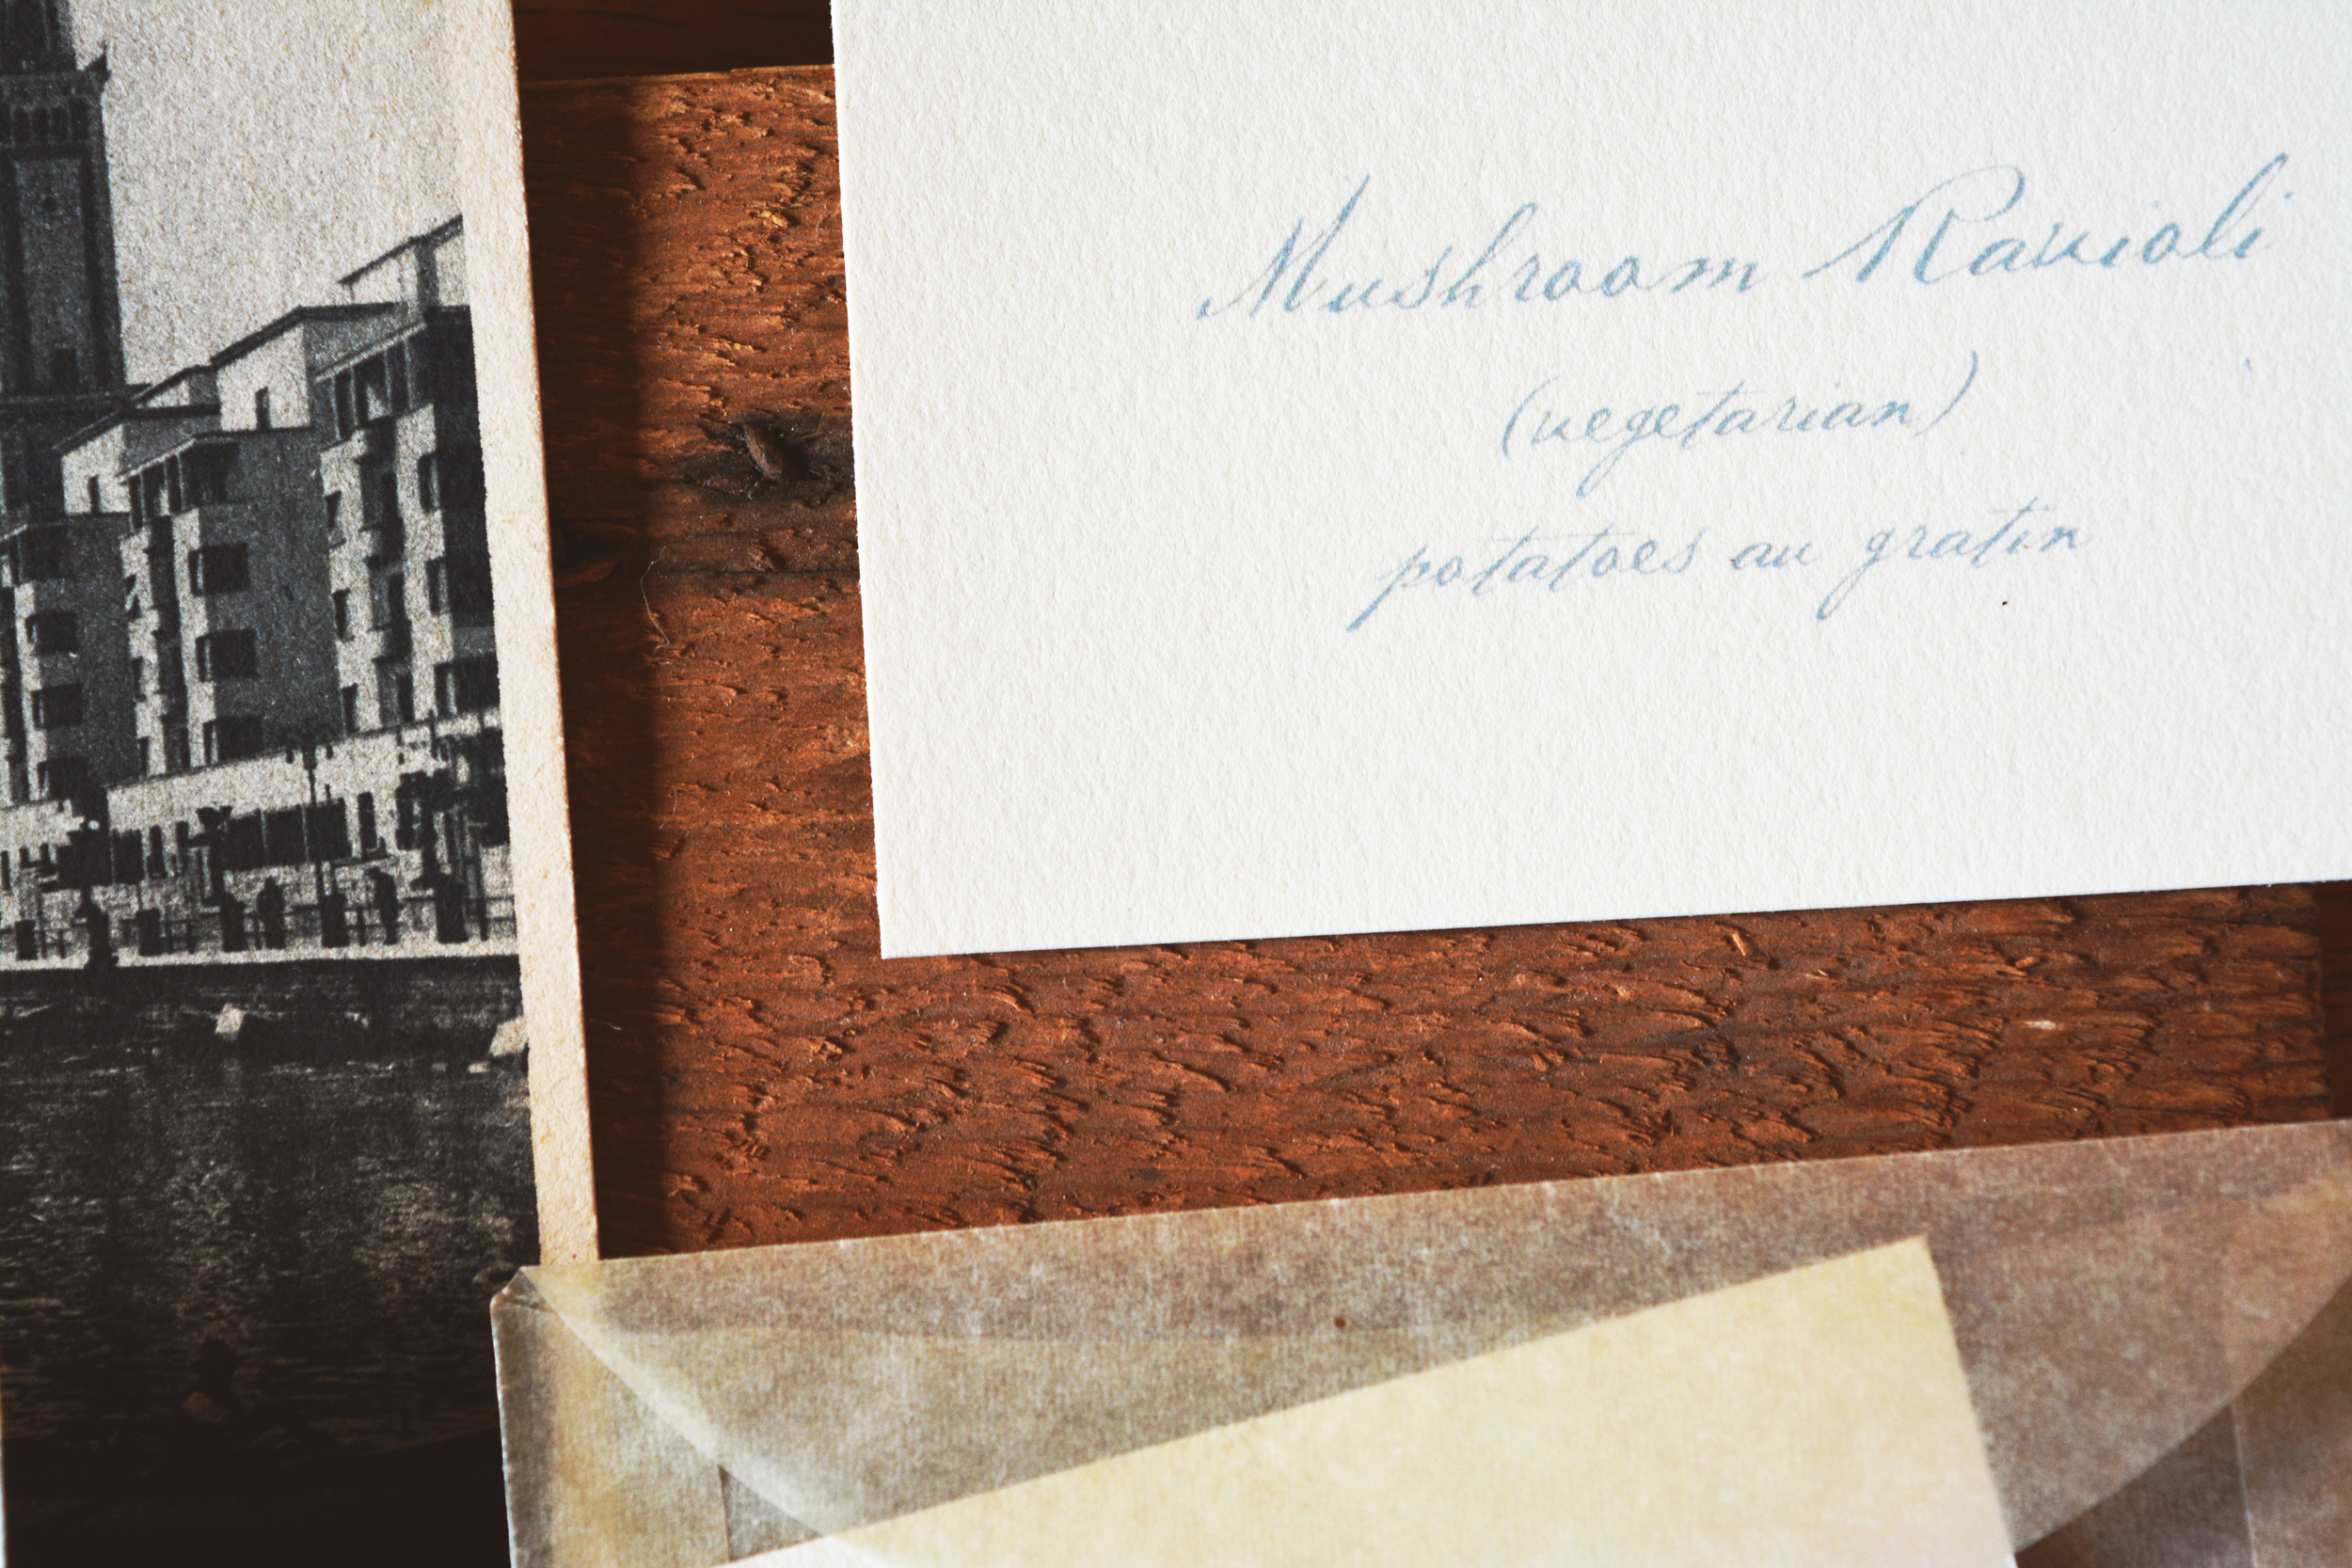 Mushroom Ravioli
(vegetarian)
potatoes au gratin